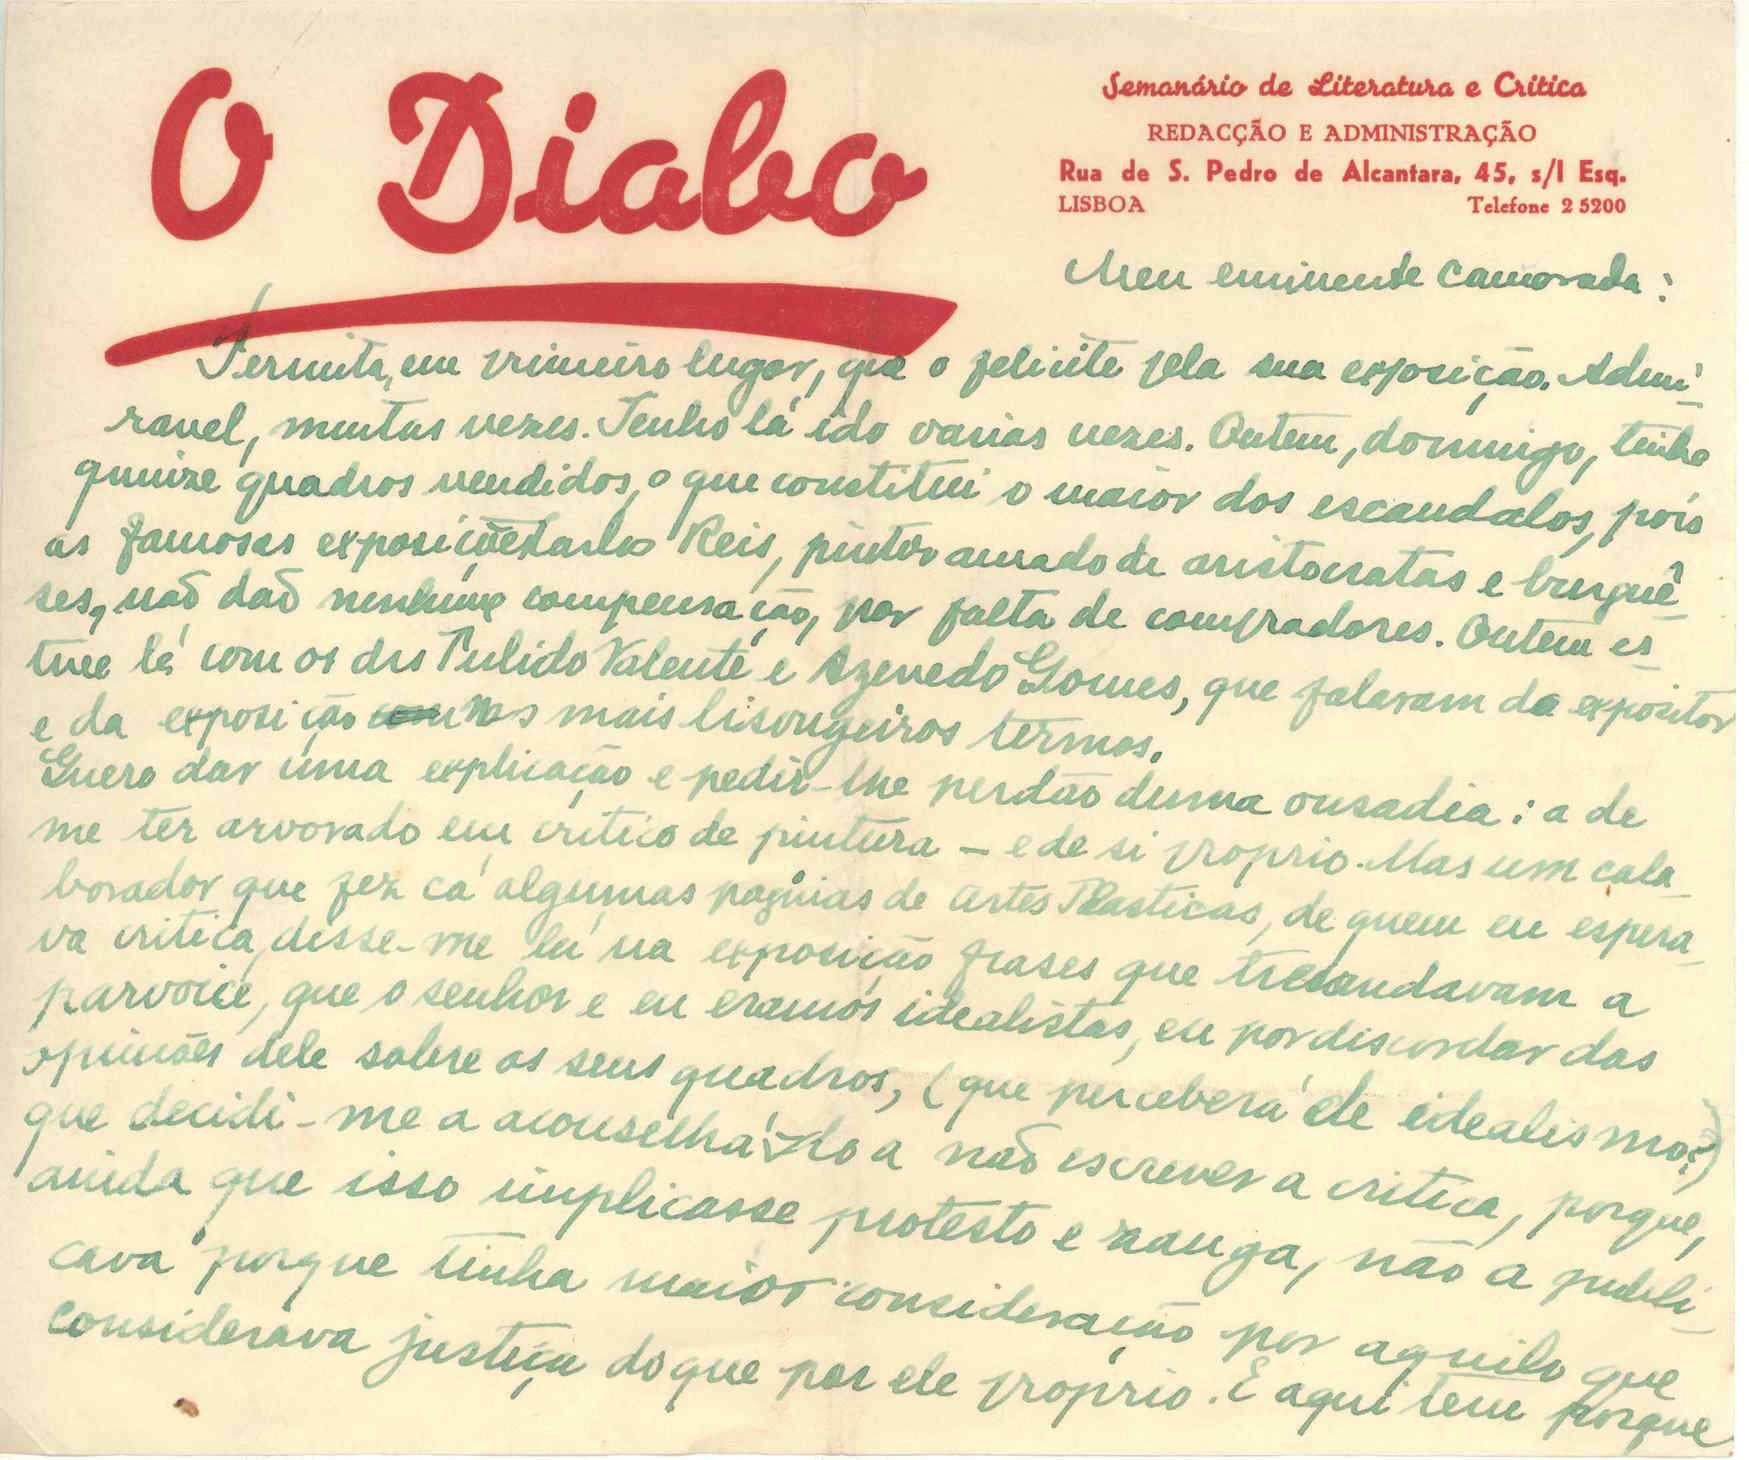 O Diabo
Semanário de Literatura e Crítica
REDACÇÃO E ADMINISTRAÇÃO
Rua de S. Pedro de Alcantara, 45, s/l Esq.
LISBOA Telefone 2 5200
Meu eminente camorada:
Permita, em primeiro lugar, que o felicite pela sua exposição. Admi-
ravel, muitas vezes. Tenho lá ido varias vezes. Ontem, domingo, tinha
quinze quadros vendidos, o que constitui o maior dos escandalos, pois
as famosas exposições Carlos Reis, pintor amado de aristocratas e burguê-
ses, não dão nenhuma compensação, por falta de compradores. Ontem es-
tive lá com os drs Pulido Valente e Azevedo Gomes, que falavam do expositor
e da exposição nos mais lisongeiros termos.
Quero dar uma explicação e pedir-lhe perdão duma ousadia: a de
me ter arvorado em crítico de pintura – e de si proprio. Mas um cola-
borador que fez cá algumas paginas de Artes Plasticas, de quem eu espera-
va critica, disse-me lá na exposição frases que tresandavam a
parvoice, que o senhor e eu eramos idealistas, eu por discordar das
opiniões dele sobre os seus quadros, (que perceberá ele idealismo?)
que decidi-me a aconselhá-lo a não escrever a critica, porque,
ainda que isso implicasse protesto e zanga, não a publi-
cava porque tinha maior consideração por aquilo que
considerava justiça do que por ele proprio. E aqui tem porque